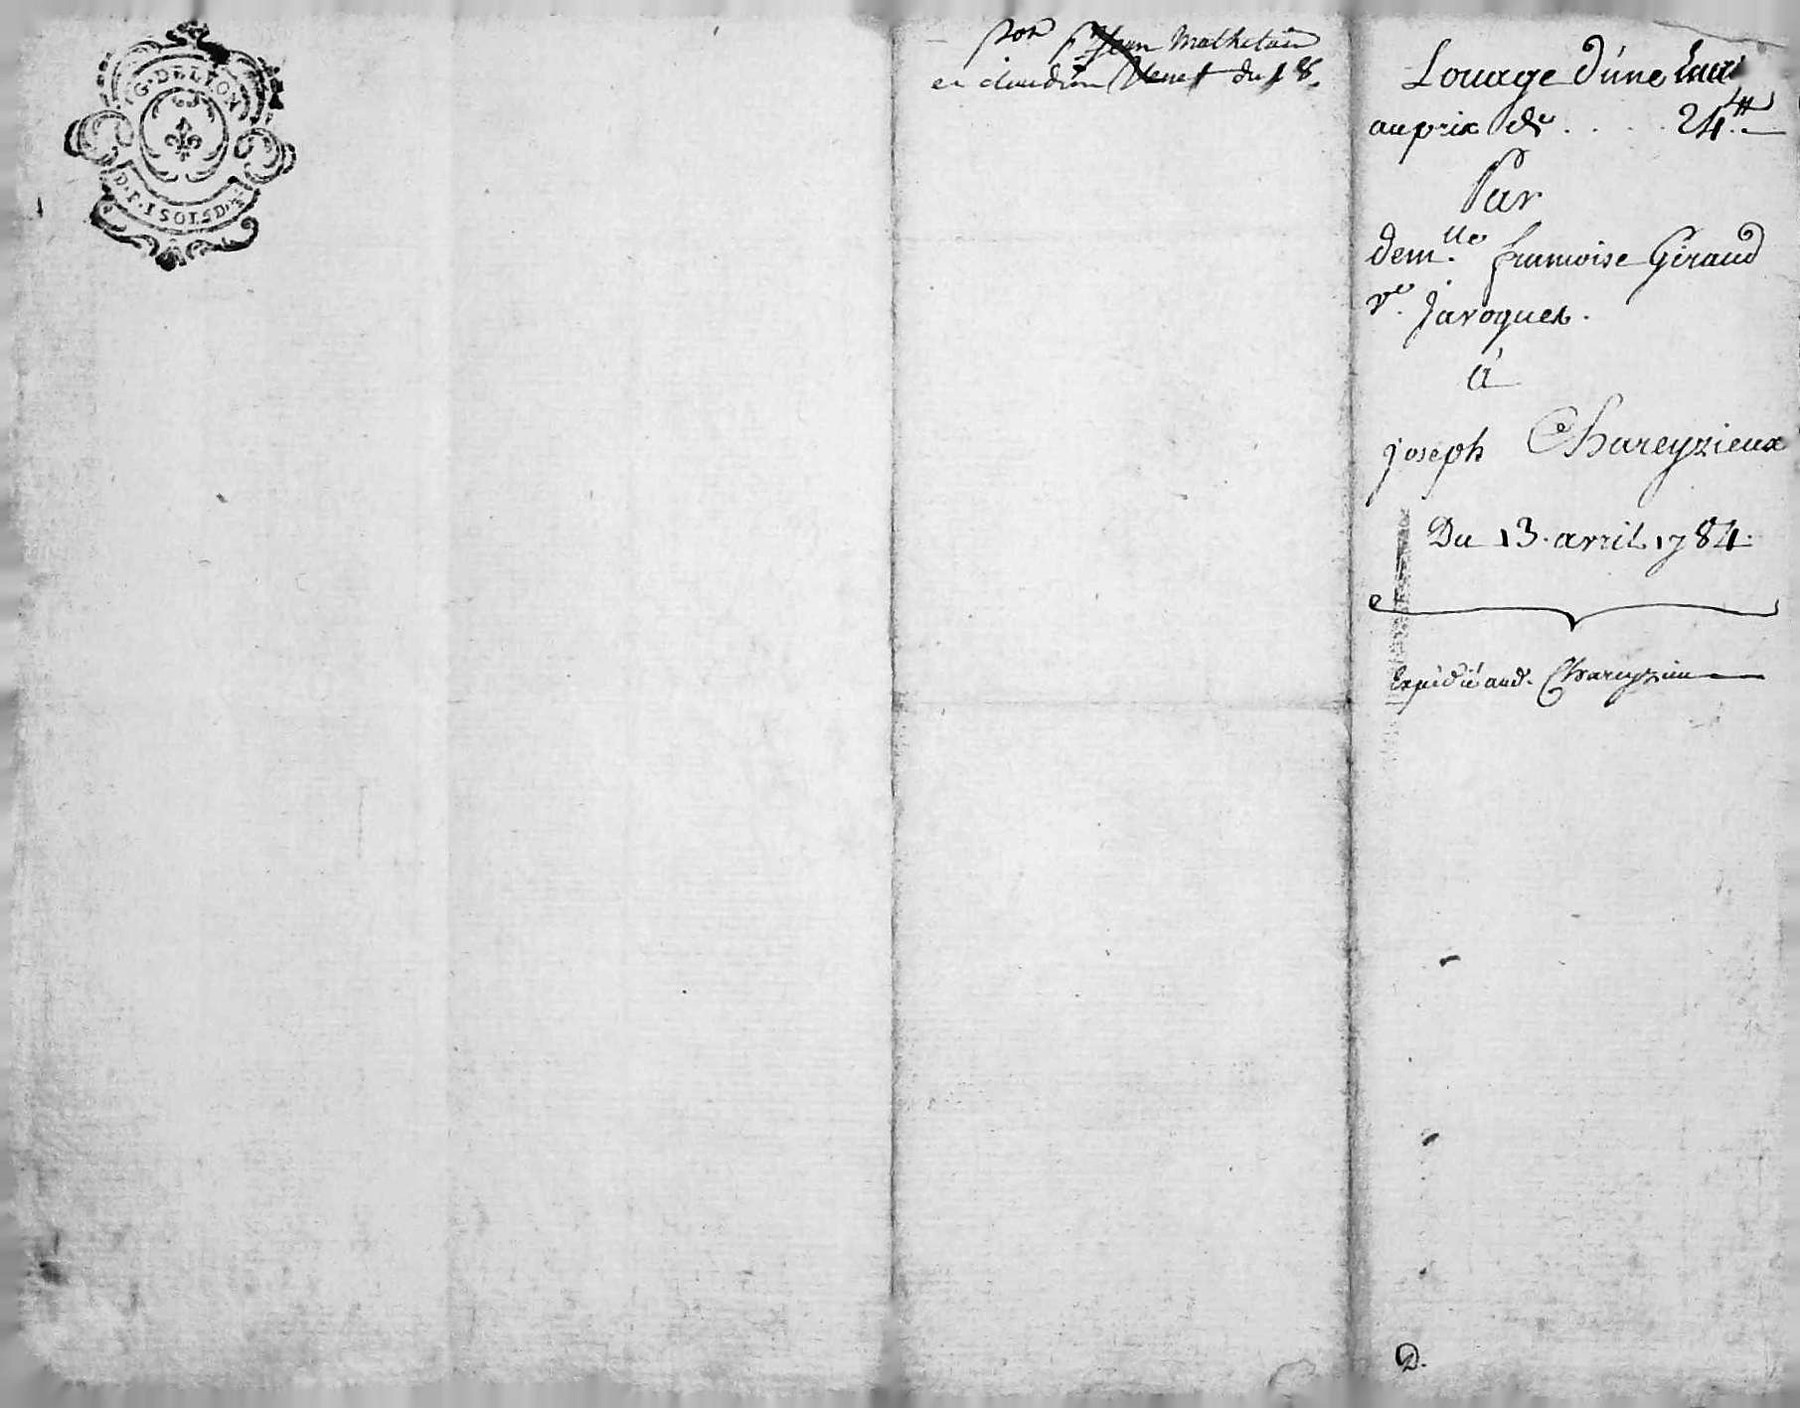 G. DE LYON
D. P. 1 SOLS D.
Jean Mathelain
et claudine Venet du 18.
Louage d'une
au prix de . . . . 24.tt
Par
dem.lle francoise Giraud
ve. Jaroquet.
à
joseph Chareyzieux
Du 13. avril 1784.
Expédié aud. Chareyzieu
D.